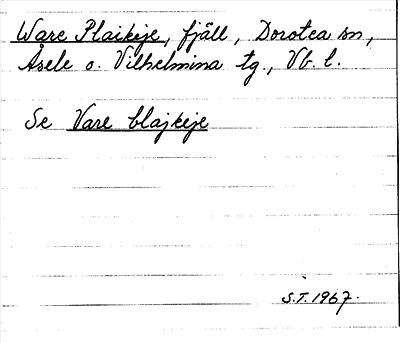 Ware Plaikeje, fjäll, Dorotea sn,
Åsele o. Vilhelmina tg., Vb. l.
Se Vare blajkeje
S.T. 1967.